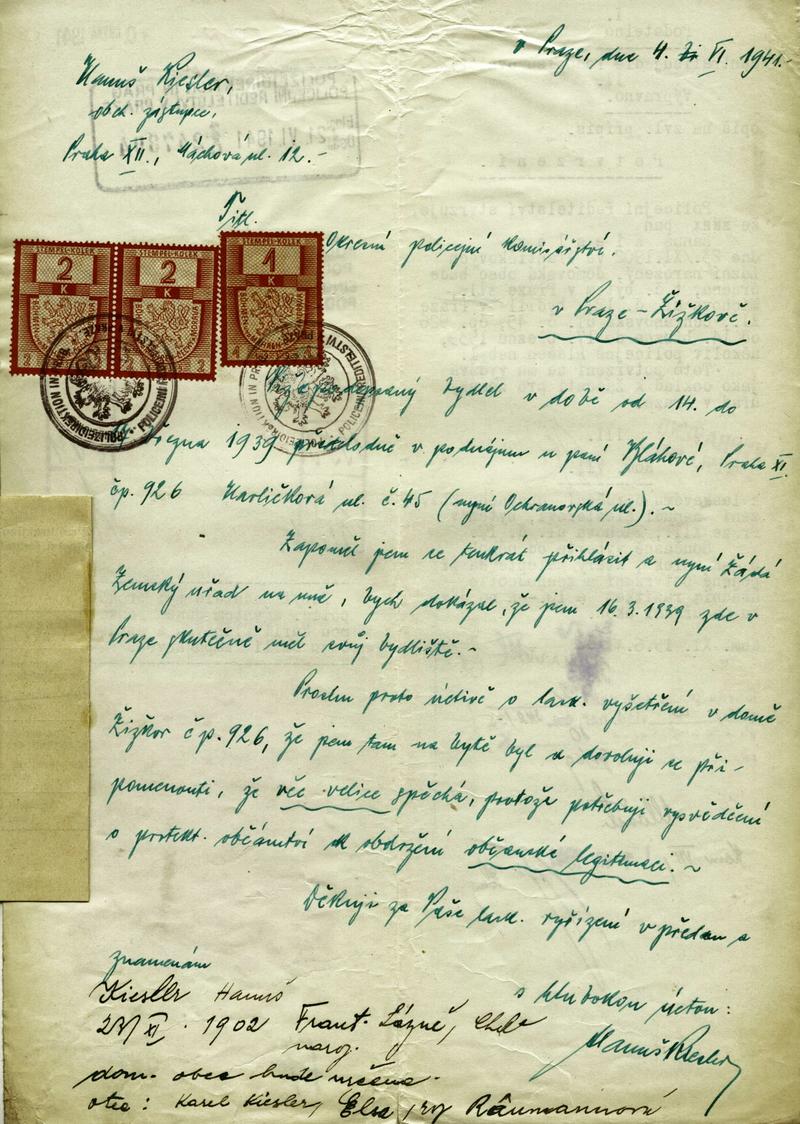 v Praze, dne 4. VI. 1941.-
Hanuš Kiesler,
obch. zástupce,
Praha XII., Máchova ul. 12.-
Titl.
Okresní policejní komisařství.
v Praze-Žižkově.
STEMPEL-KOLEK STEMPEL-KOLEK STEMPEL-KOLEK
2 2 1
K K K
POLIZEIDIREKTION IN PRAG • POLICEJNÍ ŘEDITELSTVÍ V PRAZE
POLIZEIDIREKTION IN PRAG • POLICEJNÍ ŘEDITELSTVÍ
Nížepodepsaný bydlel v době od 14. do
března 1939 v podnájmu u paní Vláhové, Praha XI.
čp. 926 Harličkova ul. č. 45 (nyní Ochranovská ul.).-
Zapoměl jsem se tenkrát přihlásit a nyní žádá
Zemský úřad na mně, bych dokázal, že jsem 16.3.1939 zde v
Praze skutečně měl svůj bydliště.-
Prosím proto uctivě o lask. vyšetření v domě
Žižkov čp. 926, že jsem tam na bytě byl a dovoluji se při-
pomenouti, že věc velice spěchá, protože potřebuji vysvědčení
o protekt. občanství k obdržení občanské legitimaci.-
Děkuji za Vaše lask. vyřízení v předem a
znamenám
s hlubokou úctou:
Hanuš Kiesler
Kiesler Hanuš
XI. 1902 Frant. Lázně, Cheb
naroz.
dom. obec bude určena.
otec: Karel Kiesler, Elsa roz. Räumannová